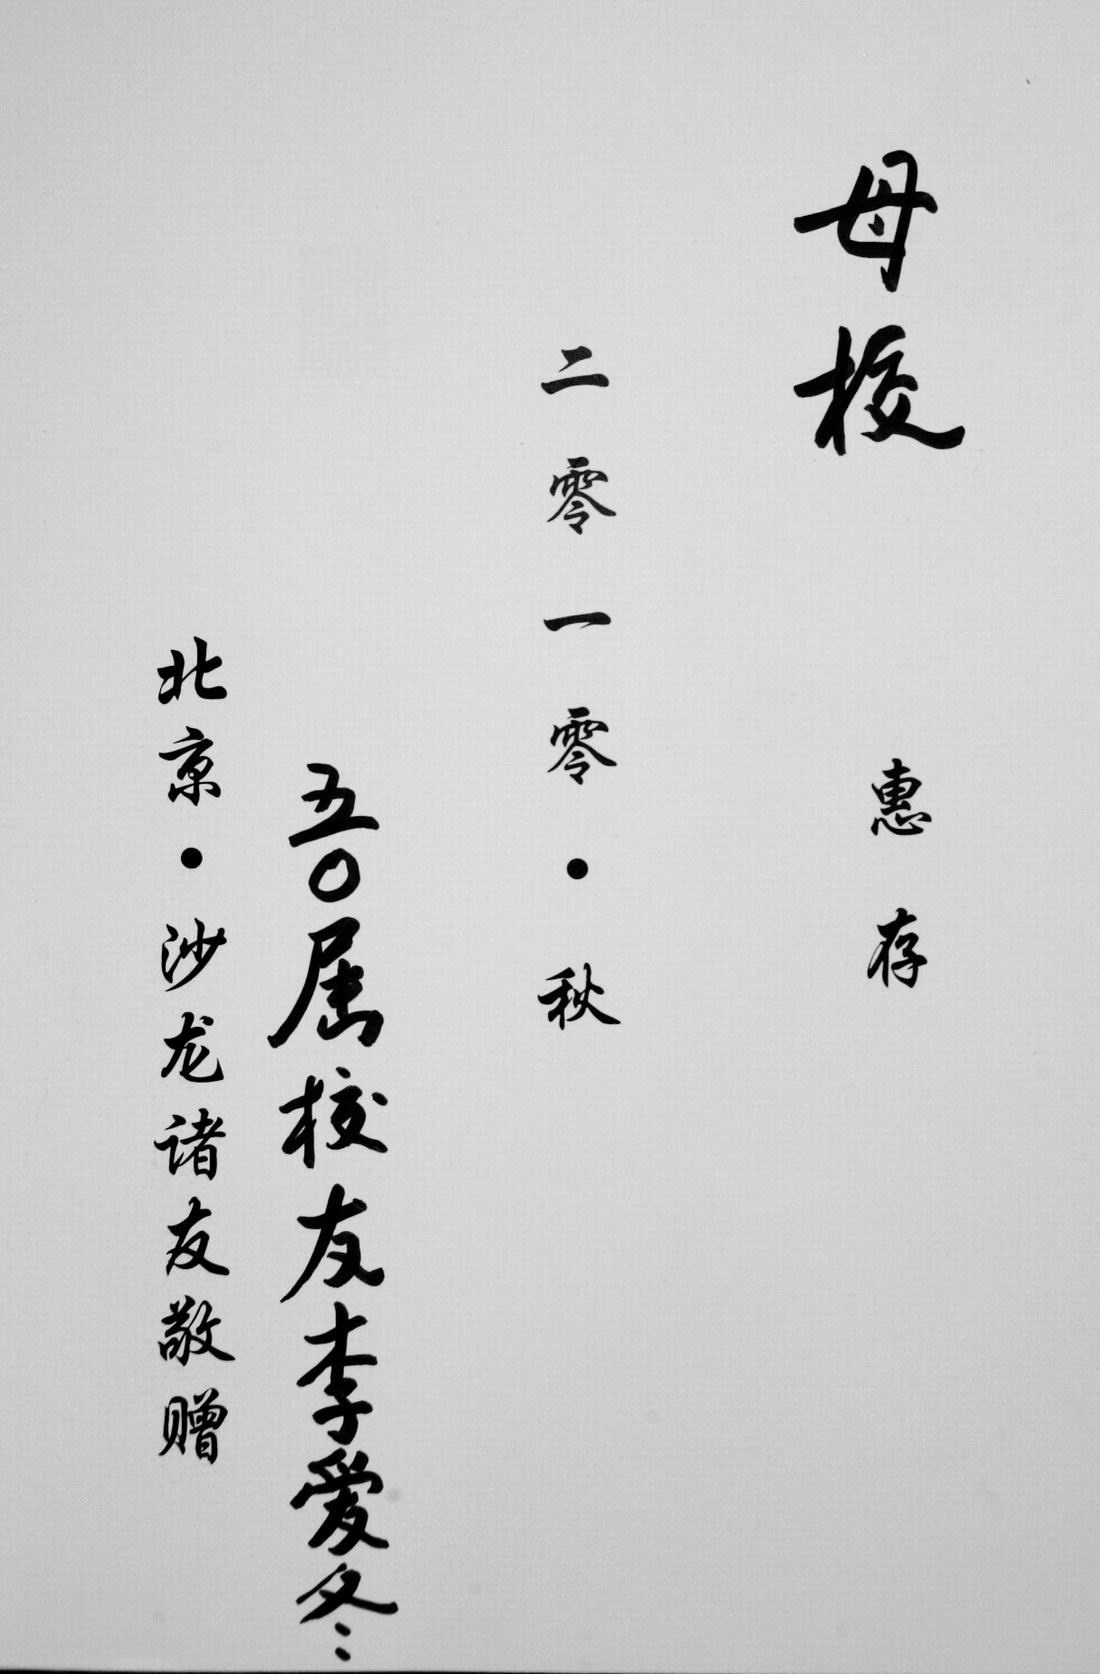 母校
惠存
二零一零·秋
五〇届校友李爱冬
北京·沙龙诸友敬赠